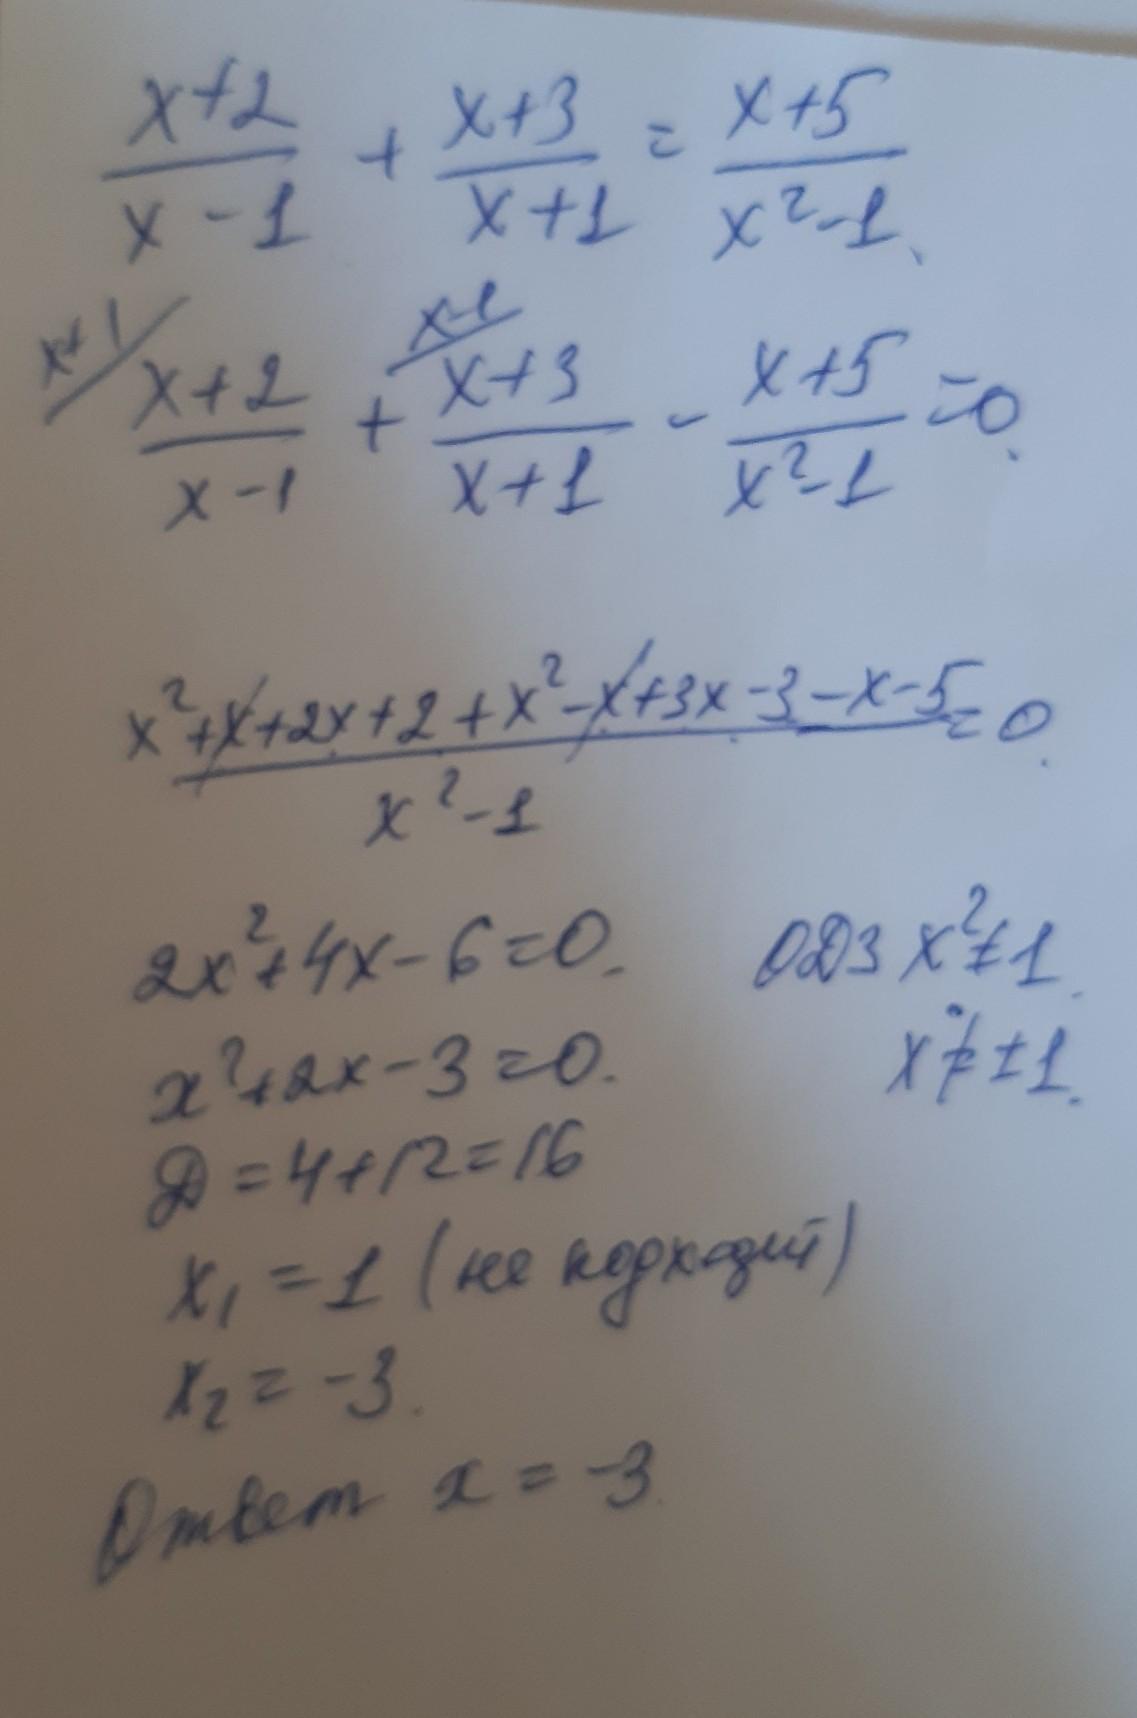 (x+2)/(x-1) + (x+3)/(x+1) = (x+5)/(x²-1).
x+1/ (x+2)/(x-1) + x-1/ (x+3)/(x+1) - (x+5)/(x²-1) = 0.
(x²+x+2x+2+x²-x+3x-3-x-5)/(x²-1) = 0.
2x²+4x-6=0. ОДЗ x²≠1.
x²+2x-3=0. x≠±1.
Д=4+12=16
x₁=1 (не подходит)
x₂=-3.
Ответ x=-3.